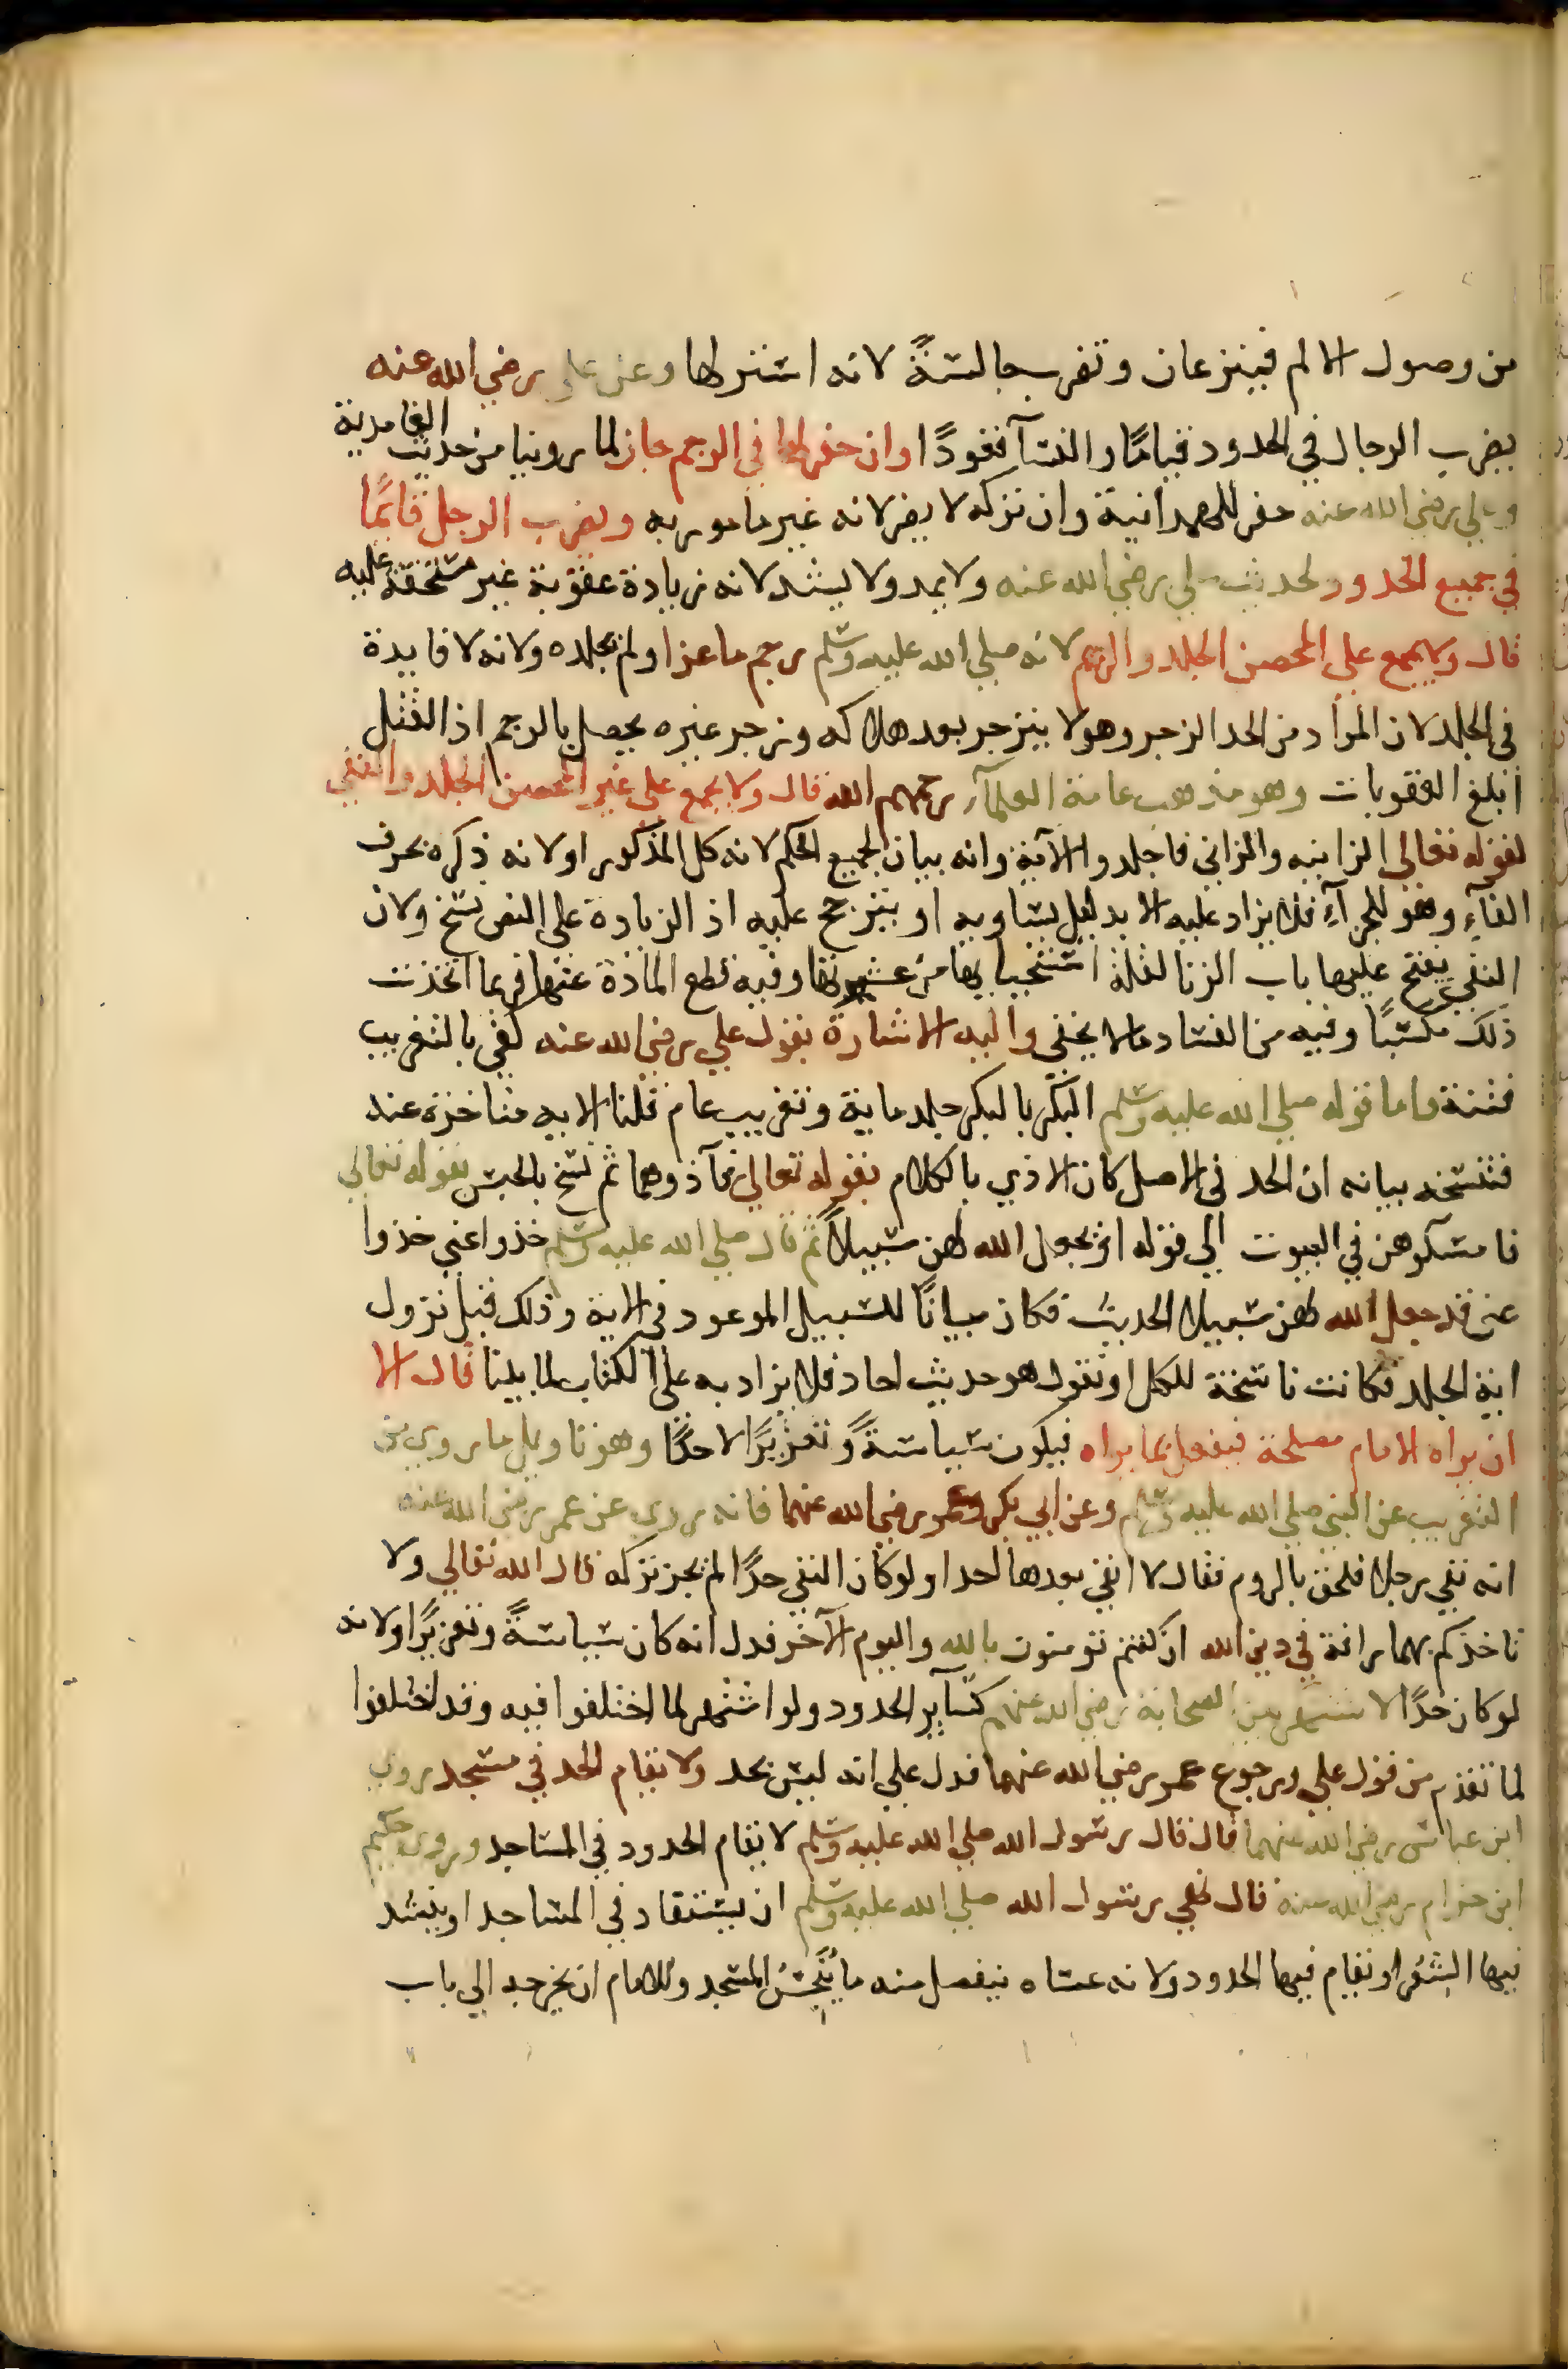 من وصول الالم فينزعان وتضرب جالسة لانه استر لها وعن علي رضي الله عنه
يضرب الرجال في الحدود قيامًا والنسآ قعودًا وان حفر لها في الرجم جاز لما روينا من حديث الغامدية
وعلي رضي الله عنه حفر للهمدانية وان تركه لا يضر لانه غير مامور به ويضرب الرجل قائمًا
في جميع الحدود لحديث علي رضي الله عنه ولا يمد ولا يشد لانه زيادة عقوبة غير مستحقة عليه
قال ولا يجمع على المحصن الجلد والرجم لانه صلي الله عليه وسلم رجم ماعزا ولم يجلده ولانه لا فايدة
في الجلد لان المراد من الحد الزجر وهو لا ينزجر بعد هلاكه وزجر غيره يحصل بالرجم اذ القتل
ابلغ العقوبات وهو مذهب عامة العلمآء رحمهم الله قال ولا يجمع على غير المحصن الجلد والنفي
لقوله تعالي الزانيه والزاني فاجلدوا الآية وانه بيان لجميع الحكم لانه كل المذكور او لانه ذكره بحرف
الفآء وهو للجزآء فلا يزاد عليه الا بدليل يساويه او يترجح عليه اذ الزيادة على النص نسخ ولان
النفي يفتح عليها باب الزنا لقلة استحيايها من عشيرتها وفيه قطع المادة عنها فربما اتخذت
ذلك مكسبًا وفيه من الفساد مالا يخفي واليه الاشارة بقول علي رضي الله عنه كفي بالتغريب
فتنة واما قوله صلي الله عليه وسلم البكر بالبكر جلد ماية وتغريب عام قلنا الايه متاخرة عنه
فتنسخه بيانه ان الحد في الاصل كان الاذي بالكلام بقوله تعالي فآذوهما ثم نسخ بالحبس بقوله تعالي
فامسكوهن في البيوت الي قوله او يجعل الله لهن سبيلاً ثم قال صلي الله عليه وسلم خذوا عني خذوا
عني قد جعل الله لهن سبيلا الحديث فكان بيانًا للسبيل الموعود في الاية وذلك قبل نزول
اية الجلد فكانت ناسخة للكل او نقول هو حديث احاد فلا يزاد به على الكتاب لما بينا قال الا
ان يراه الامام مصلحة فيفعل بما يراه فيكون سياسةً وتعزيرًا لا حدًا وهو تاويل ما روي من
التغريب عن النبي صلي الله عليه وسلم وعن ابي بكر وعمر رضي الله عنهما فانه روي عن عمر رضي الله عنه
انه نفي رجلا فلحق بالروم فقال لا انفي بعدها احدا ولو كان النفي حدًا لم يجز تركه قال الله تعالي ولا
تاخذكم بهما رافة في دين الله ان كنتم تومنون بالله واليوم الآخر فدل انه كان سياسةً وتعزيرًا ولانه
لو كان حدًا لاشتهر بين الصحابة رضي الله عنهم كسآير الحدود ولو اشتهر لما اختلفوا فيه وقد اختلفوا
لما تقدم من قول علي ورجوع عمر رضي الله عنهما فدل على انه ليس بحد ولا يقام الحد في مسجد روي
ابن عباس رضي الله عنهما قال قال رسول الله صلي الله عليه وسلم لا يقام الحدود في المساجد وروي حكيم
ابن حزام رضي الله عنه قال نهي رسول الله صلي الله عليه وسلم ان يستقاد في المساجد او ينشد
فيها الشعر او يقام فيها الحدود ولانه عساه ينفصل منه ما يُنجّسُ المسجد وللامام ان يخرجه الي باب